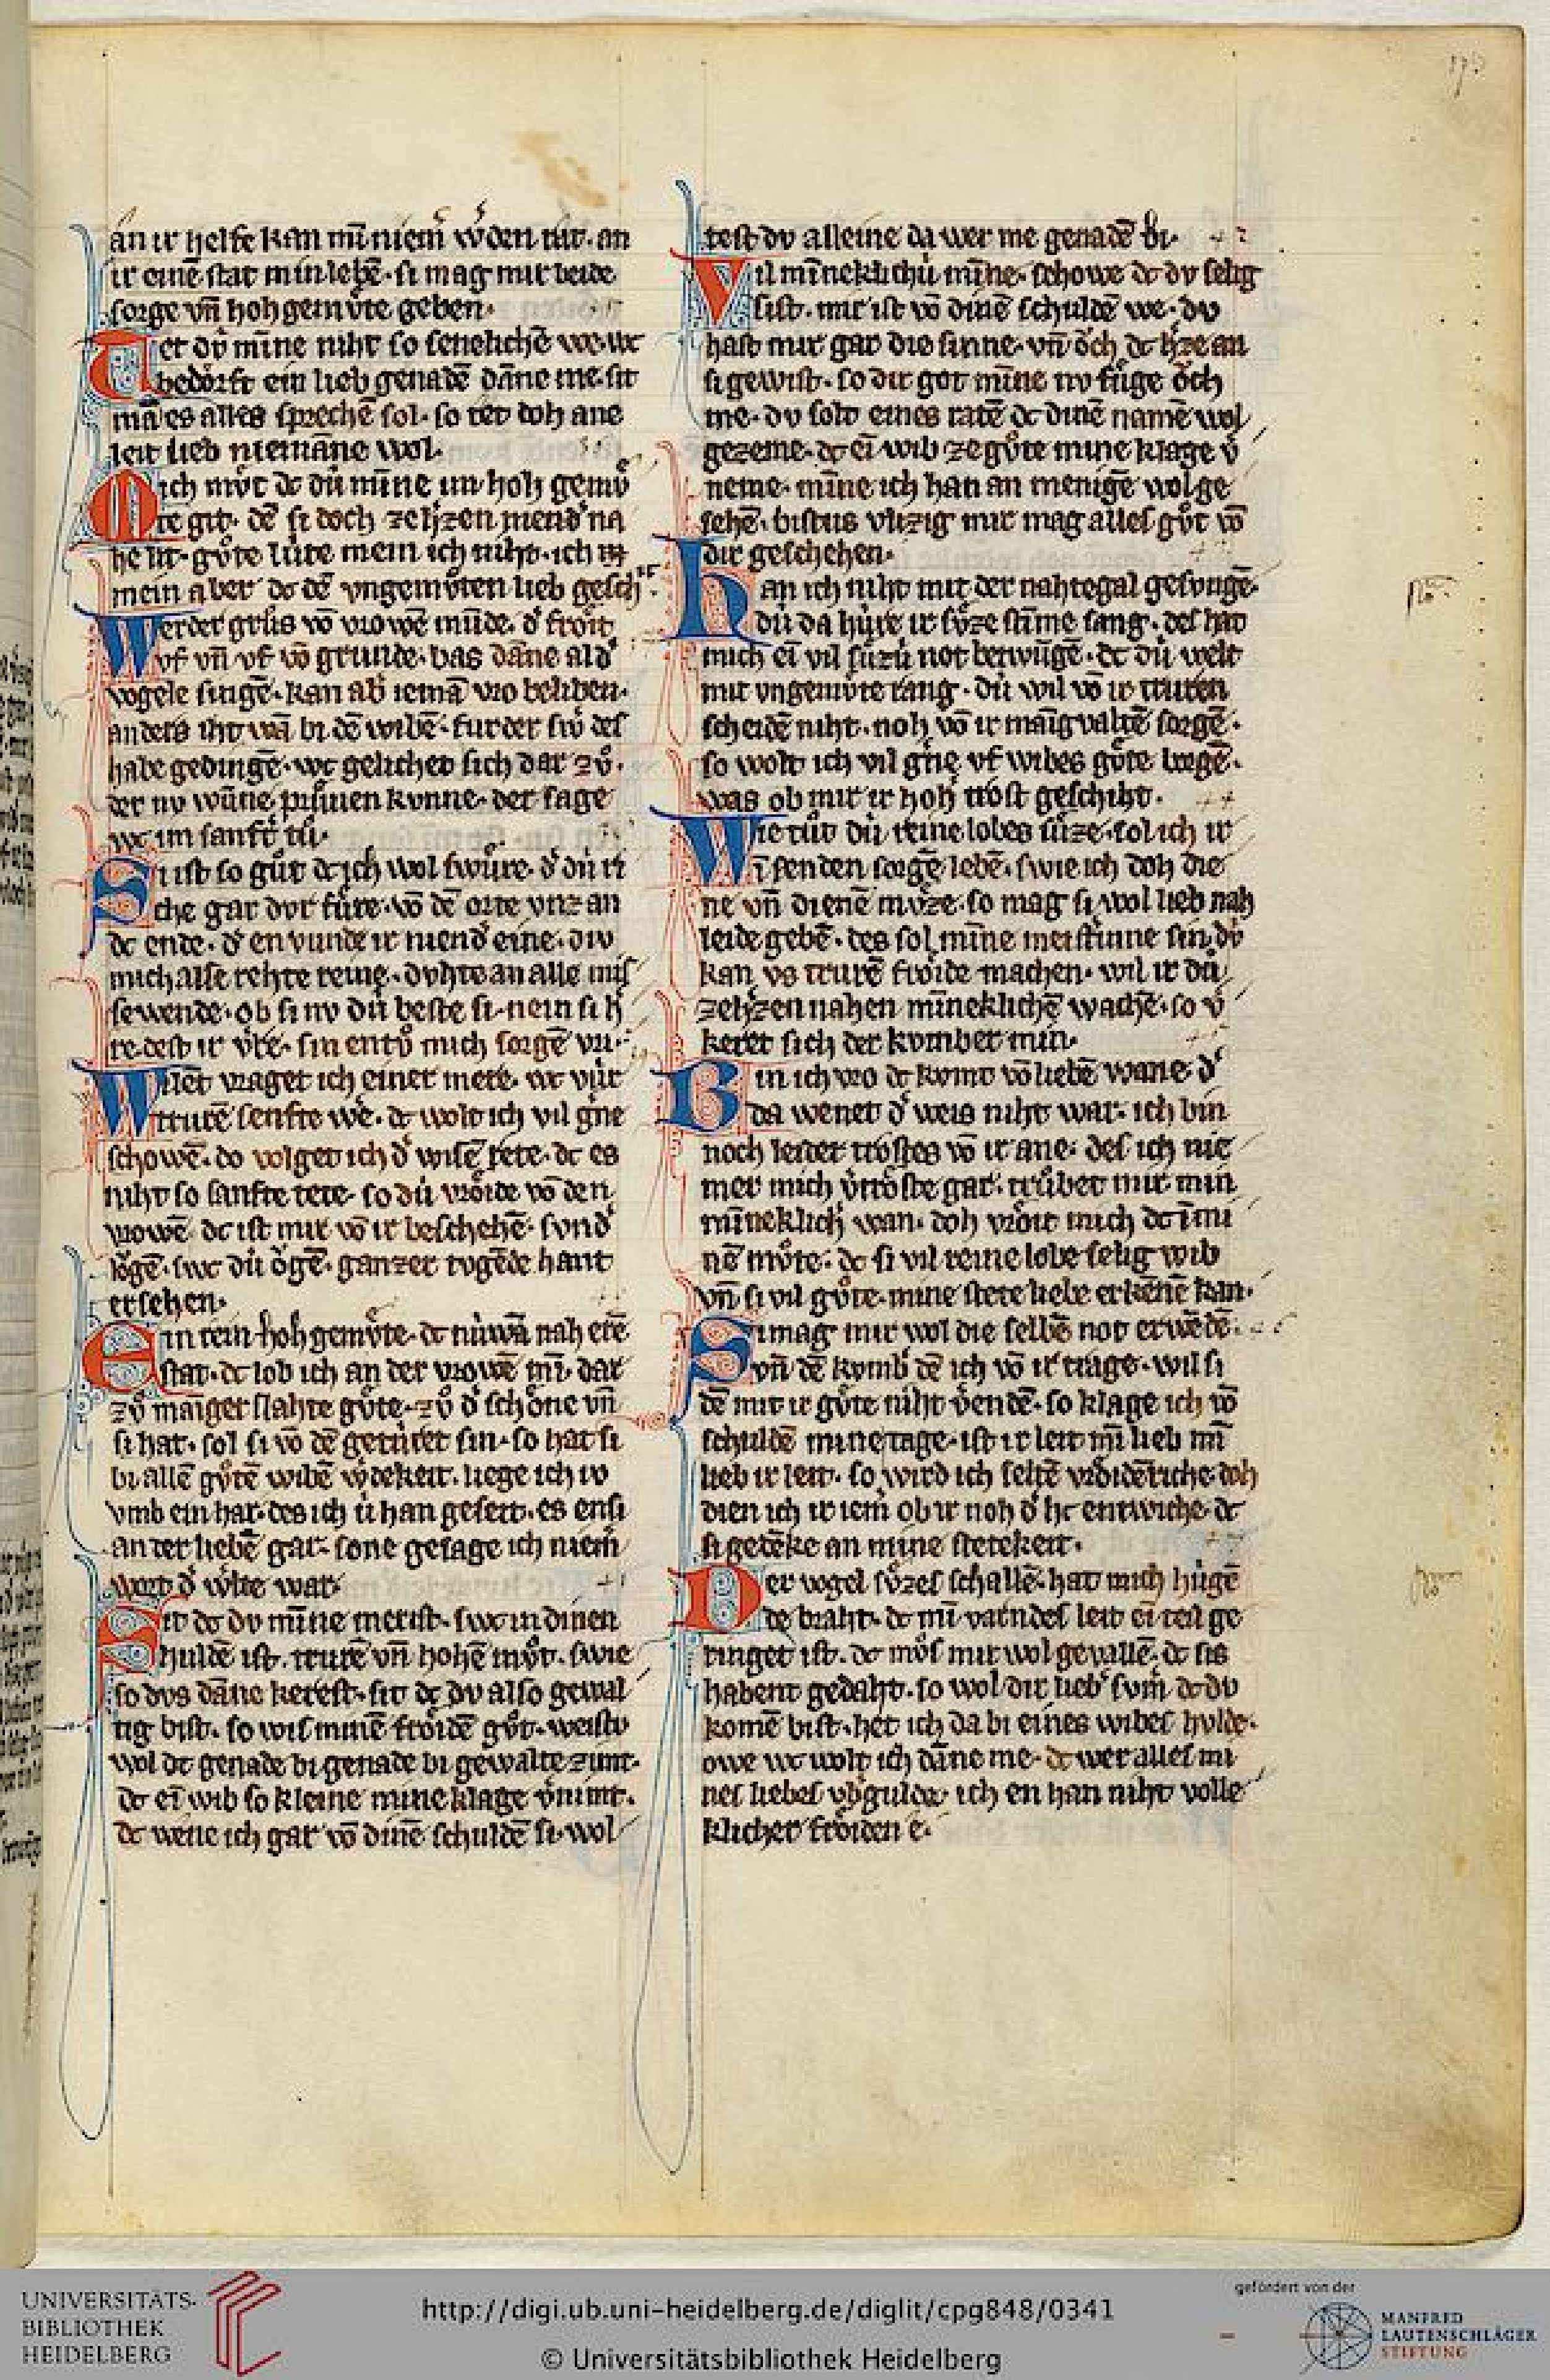 173
an ir helfe kan mī niem̄ wˢden rat. an
ir einē stat min lebē. si mag mir beide
sorge vn̄ hohgemvͤte geben.
Tet dv̍ mīne niht so senelichē we. wc
bedoͤrft ein lieb genadē dāne me. sit
mā es alles sprechē sol. so tet doh ane
leit lieb niemāne wol.
Mich mvͤt dc dv̍ mīne im hoh gemvͤ
te git. dē si doch ze hˢzen niendˢ na
he lit. gvͦte lúte mein ich niht. ich
mein aber dc dē vngemvͦten lieb gesch
Werder grůs vō vrowē mūde. dˢ froͤit
vf vn̄ vf vō grunde. bas dāne al dˢ
vogele singē. kan abˢ iemā vro beliben.
anders iht wā bi dē wibē. fur der swˢ des
habe gedingē. wc gelichet sich dar zvͦ.
der nv wūne pruͤuen kvnne. der sage
wc im sanftˢ tuͦ.
Si ist so guͦt dc ich wol swuͤre. dˢ dú ri
che gar dvr fuͤre. vō dē orte vnz an
dc ende. dˢ en vunde ir niendˢ eine. div
mich alse rehte reine. dvhte an alle mis
sewende. ob si nv dú beste si. nein si hˢ
re. dest ir vͤre. sin entvͦ mich sorgē vri.
Wilēt vraget ich einer mere. wc vúr
trurē senfte we. dc wolt ich vil gˢne
schowē. do volget ich dˢ wisē rete. dc es
niht so sanfte tete. so dú vroͤide vō den
vrowē. dc ist mir vō ir beschehē. svndˢ
loͮgē. swc dú oͮgē. ganzer tvgēde hant
ersehen.
Ein rein hoh gemvͤte. dc núwā nah erē
stat. dc lob ich an der vrowē mī. dar
zvͦ māiger slahte gvͤte. zvͦ dˢ schoͤne vn̄
si hat. sol si vō dē getúret sin. so hat si
bi allē gvͦtē wibē wˢdekeit. liege ich iv
vmb ein har. des ich ú han geseit. es ensi
an ter liebē gar. sone gesage ich niem̄
wort dˢ wˢlte war.
Sit dc dv mīne merist. swc in dinen
hulde͂ ist. trurē vn̄ hohē mvͦt. swie
so dvs dāne kerest. sit dc dv also gewal
tig bist. so wis minē froͤidē gvͦt. weistv
wol dc genade bi genade bi gewalte zimt.
dc eī wib so kleine mine klage vˢnimt.
dc wene ich gar vō dinē schuldē si. wol
test dv alleine da wer me genadē bi.
Vil mīneklichú mīne. schowe dc dv selig
sist. mir ist vō dinē schuldē we. dv
hast mir gar die sinne. vn̄ oͮch dc hˢze an
si gewist. so dir got mīne nv fuͤge oͮch
me. dv solt eines ratē dc dinē namē wol
gezeme. dc eī wib ze gvͤte mine klage vˢ
neme. mīne ich han an menigē wol ge
sehē. bistus vlizig mir mag alles gvͦt vō
dir geschehen.
Han ich niht mit der nahtegal gesvngē.
dú da húre ir svͤze stīme sang. des hat
mich eī vil súzú not betwūgē. dc dú welt
mit vngemvͤte rang. dú wil vō ir truren
scheidē niht. noh vō ir māigvaltē sorgē.
so wolt ich vil gˢne vf wibes gvͤte borgē.
was ob mir ir hoh trost geschiht.
Wie tuͦt dú reine lobes suͤze. sol ich ir
ī senden sorgē lebē. swie ich doh die
ne vn̄ dienē mvͤze. so mag si wol lieb nah
leide gebē. des sol mīne meistˢinne sin. dv̍
kan vs trurē froͤide machen. wil ir dú
ze hˢzen nahen mīneklichē wachē. so vˢ
keret sich der kvmber min.
Bin ich vro dc kvmt vō liebē wane. dˢ
da wenet dˢ weis niht war. ich bin
noch leider trostes vō ir ane. des ich nie
mer mich vˢtroͤste gar. truͤbet mir min
mīneklich wan. doh vroͤit mich dc ī mi
nē mvͦte. dc si vil reine lobe selig wib
vn̄ si vil gvͦte. mine stete liebe erkēnē kan.
Si mag mir wol die selbē not erwēdē.
vn̄ dē kvmbˢ dē ich vō ir trage. wil si
dē mit ir gvͤte niht vˢendē. so klage ich vō
schuldē mine tage. ist ir leit mī lieb mī
lieb ir leit. so wird ich seltē vroͤidēriche. doh
dien ich ir iem̄ ob ir noh dˢ hˢ entwiche. dc
si gedēke an mine stetekeit.
Der vogel svͤzes schallē. hat mich húgē
de braht. dc mī varndes leit eī teil ge
ringet ist. dc mvͦs mir wol gevallē. dc sis
habent gedaht. so wol dir liebˢ svm̄ˢ dc dv
komē bist. het ich da bi eines wibes hvlde.
owe wc wolt ich dāne me. dc wer alles mi
nes liebes vbˢgulde. ich en han niht volle
klicher froͤiden e.
UNIVERSITÄTS-
BIBLIOTHEK
HEIDELBERG
http://digi.ub.uni-heidelberg.de/diglit/cpg848/0341
© Universitätsbibliothek Heidelberg
gefördert von der
MANFRED
LAUTENSCHLÄGER
STIFTUNG